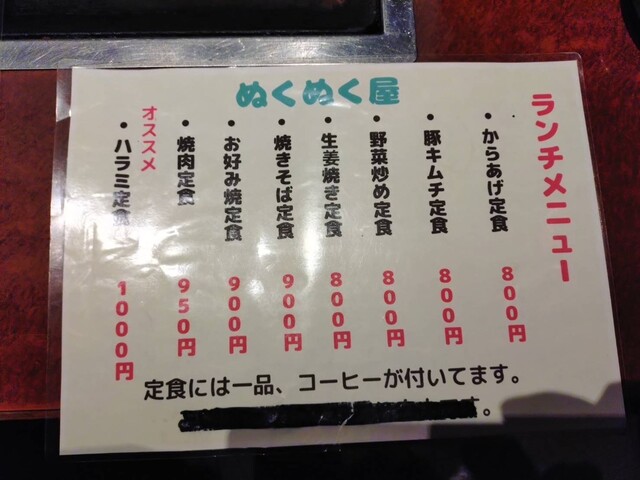 ぬくぬく屋
ランチメニュー
・からあげ定食 800円
・豚キムチ定食 800円
・野菜炒め定食 800円
・生姜焼き定食 800円
・焼きそば定食 900円
・お好み焼定食 900円
・焼肉定食 950円
オススメ
・ハラミ定食 1000円
定食には一品、コーヒーが付いてます。
。